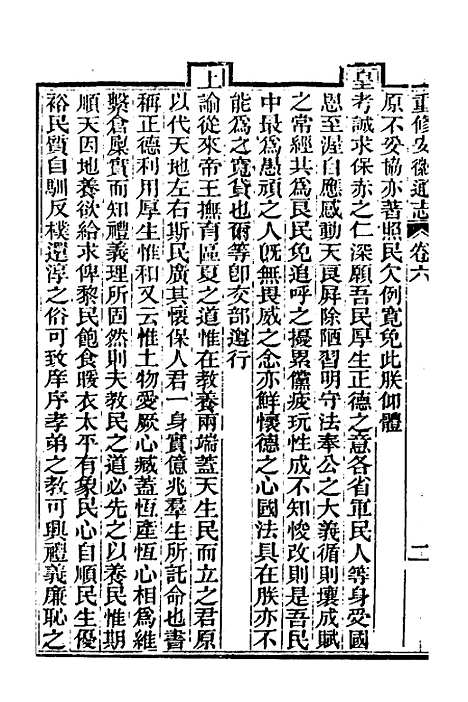 重修安徽通志 卷六 二
原不妥協亦著照民欠例寬免此朕仰體
皇考誠求保赤之仁深願吾民厚生正德之意各省軍民人等身受國
恩至渥自應感動天良屏除陋習明守法奉公之大義循則壤成賦
之常經共爲良民免追呼之擾累儻疲玩性成不知悛改則是吾民
中最爲愚頑之人旣無畏威之念亦鮮懷德之心國法具在朕亦不
能爲之寬貸也爾等卽交部遵行
上
諭從來帝王撫育區夏之道惟在敎養兩端蓋天生民而立之君原
以代天地左右斯民廣其懷保人君一身實億兆羣生所託命也書
稱正德利用厚生惟和又云惟土物愛厥心臧蓋恆產恆心相爲維
繫倉廩實而知禮義理所固然則夫敎民之道必先之以養民惟期
順天因地養欲給求俾黎民飽食暖衣太平有象民心自順民生優
裕民質自馴反樸還淳之俗可致庠序孝弟之敎可興禮義廉恥之